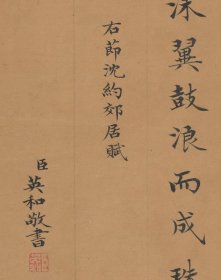 沫翼鼓浪而成珠
右節沈約郊居賦
臣英和敬書